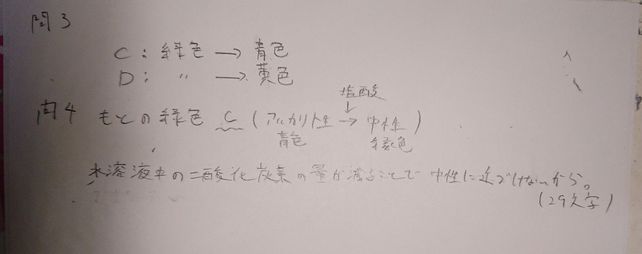 問3
C:緑色→青色
D: 〃 →黄色
塩酸
↓
問4 もとの緑色 C (アルカリ性→中性)
青色 緑色
水溶液中の二酸化炭素の量が減ることで中性に近づけないから。
(29文字)